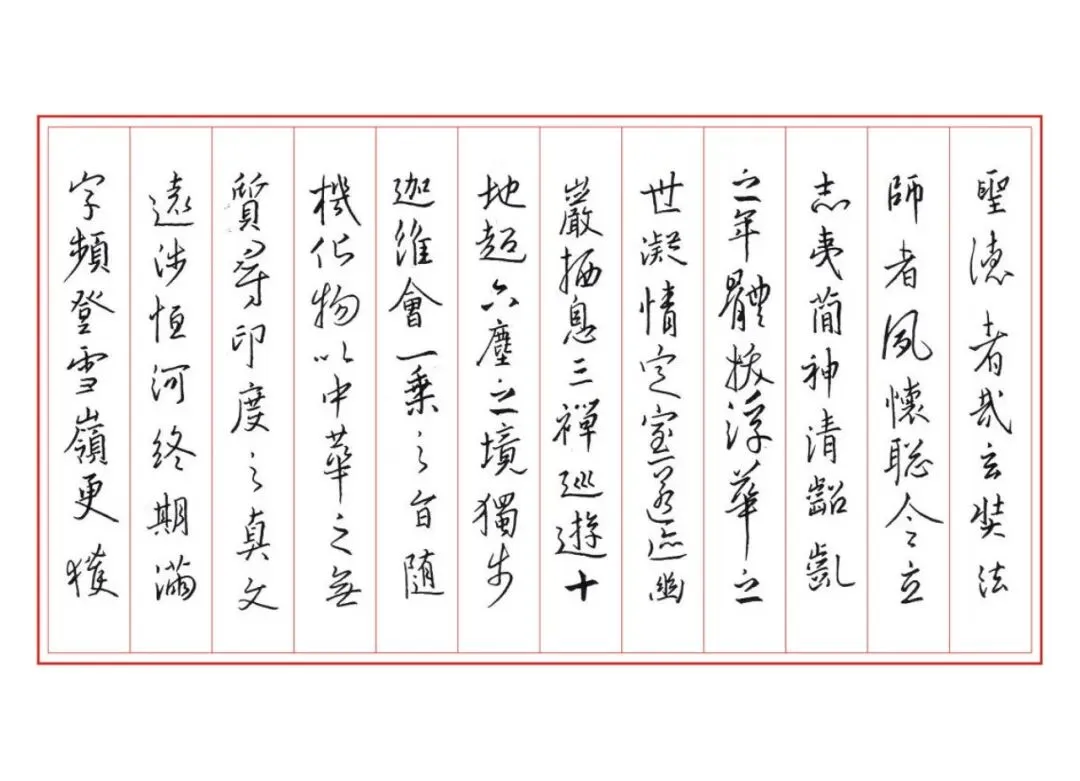 聖德者哉玄奘法
師者夙懷聡令立
志夷簡神清齠齔
之年體拔浮華之
世凝情定室匿迹幽
巖栖息三禪巡遊十
地超六塵之境獨步
迦維會一乘之旨随
機化物以中華之無
質尋印度之真文
遠涉恒河終期滿
字頻登雪嶺更獲